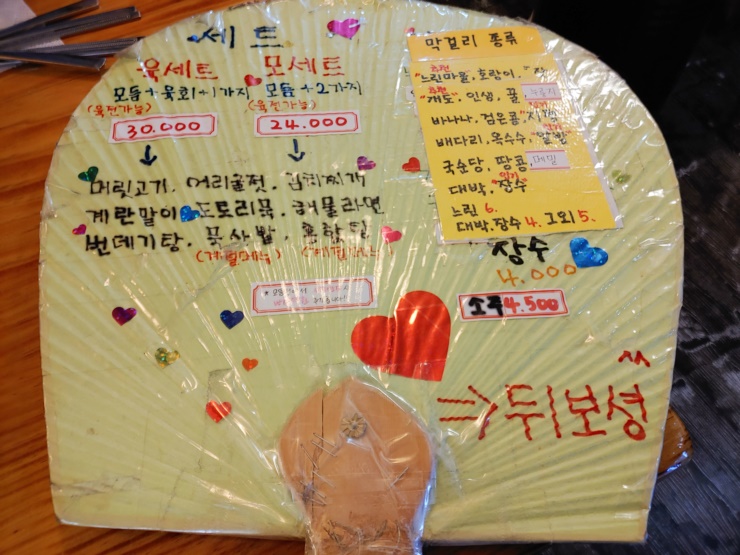 세트
육세트
모둠+육회+1가지
(육전가능)
30.000
모세트
모둠+2가지
(육전가능)
24.000
머릿고기. 어리굴젓. 김치찌개
계란말이. 도토리묵. 해물라면
번데기탕. 묵사발. 홍합탕
(계절메뉴) (계절메뉴)
막걸리 종류
추천
"느린마을, 호랑이,
추천
"개도", 인생, 꿀,
바나나, 검은콩,
배다리, 옥수수,
국순당, 땅콩, 메밀
인기
대박, 장수
느린 6.
대박, 장수 4. 그외 5.
장수
4.000
소주 4.500
⇒ 뒤보셩
^^